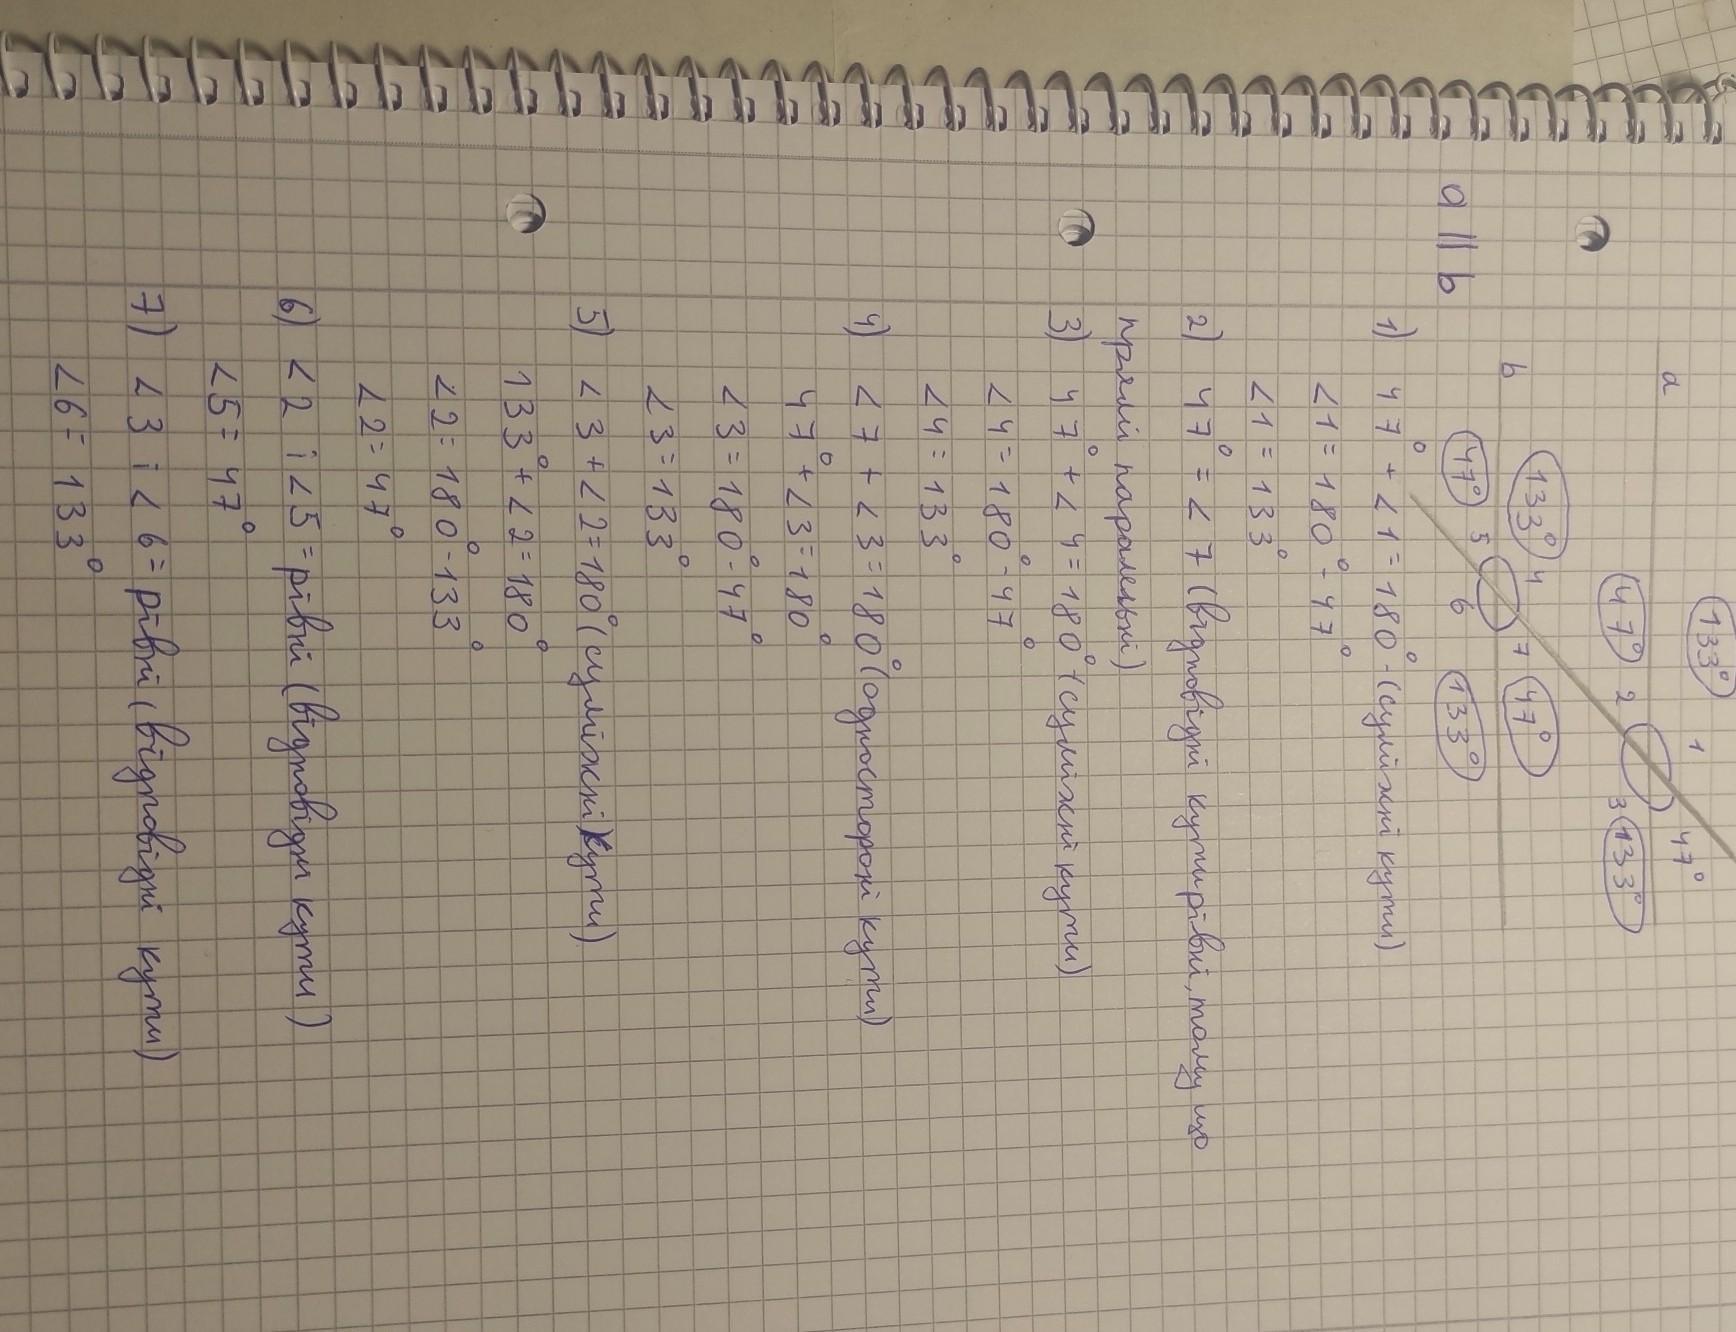 133° 1 47°
a
47° 2 3 133°
133° 4 7 47°
b
5 6 133°
47°
a || b
1) 47° + ∠1 = 180° - (суміжні кути)
∠1 = 180° - 47°
∠1 = 133°
2) 47° = ∠7 (відповідні кути рівні, тому що
прямі паралельні)
3) 47° + ∠4 = 180° - (суміжні кути)
∠4 = 180° - 47°
∠4 = 133°
4) ∠7 + ∠3 = 180° (односторонні кути)
47° + ∠3 = 180°
∠3 = 180° - 47°
∠3 = 133°
5) ∠3 + ∠2 = 180° (суміжні кути)
133° + ∠2 = 180°
∠2 = 180° - 133°
∠2 = 47°
6) ∠2 і ∠5 = рівні (відповідні кути)
∠5 = 47°
7) ∠3 і ∠6 = рівні (відповідні кути)
∠6 = 133°